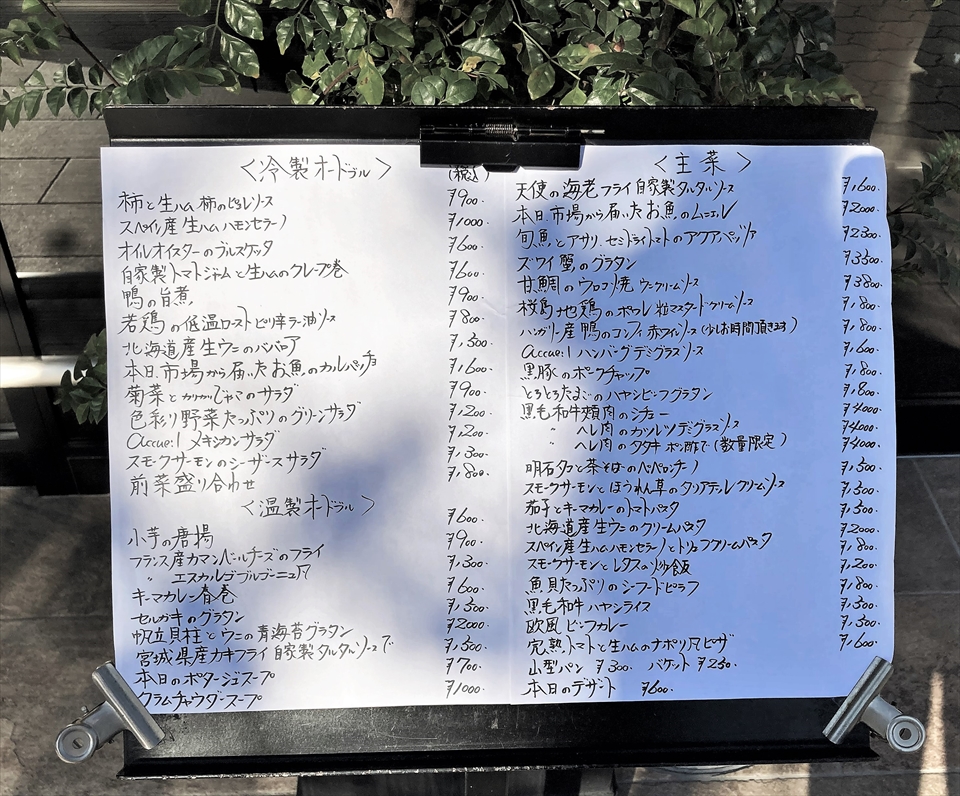 ＜冷製オードブル＞ (税込)
柿と生ハム 柿のピュレソース ¥900.
スペイン産生ハム ハモンセラーノ ¥1000.
オイルオイスターのブルスケッタ ¥600.
自家製トマトジャムと生ハムのクレープ巻 ¥600.
鴨の旨煮 ¥900.
若鶏の低温ロースト ピリ辛ラー油ソース ¥800.
北海道産生ウニのババロア ¥1,500.
本日、市場から届いたお魚のカルパッチョ ¥1,600.
菊菜とカリカリじゃこのサラダ ¥900.
色彩り野菜たっぷりのグリーンサラダ ¥1,200.
accueil メキシカンサラダ ¥1,200.
スモークサーモンのシーザースサラダ ¥1,300.
前菜盛り合わせ ¥1,800.
＜温製オードブル＞
小芋の唐揚 ¥600.
フランス産カマンベールチーズのフライ ¥900.
〃 エスカルゴブルゴーニュ風 ¥1,300.
キーマカレー春巻 ¥600.
セルガキのグラタン ¥1,500.
帆立貝柱とウニの青海苔グラタン ¥2000.
宮城県産カキフライ 自家製タルタルソースで ¥1,500.
本日のポタージュスープ ¥700.
クラムチャウダースープ ¥1000.
＜主菜＞
天使の海老フライ 自家製タルタルソース ¥1,600.
本日、市場から届いたお魚のムニエル ¥2000.
旬魚とアサリ、セミドライトマトのアクアパッツァ ¥2300.
ズワイ蟹のグラタン ¥3500.
甘鯛のウロコ焼 ウニクリームソース ¥3800.
桜島地鶏のポワレ 粒マスタードクリームソース ¥1,800.
ハンガリー産鴨のコンフィ 赤ワインソース (少しお時間頂きます) ¥1,800.
accueil ハンバーグ デミグラスソース ¥1,600.
黒豚のポークチャップ ¥1,800.
とろとろたまごのハヤシビーフグラタン ¥1,800.
黒毛和牛頬肉のシチュー ¥4000.
〃 ヘレ肉のカツレツ デミグラスソース ¥4000.
〃 ヘレ肉のタタキ ポン酢で (数量限定) ¥4000.
明石タコと茶そばのペペロンチーノ ¥1,500.
スモークサーモンとほうれん草のタリアテッレ クリームソース ¥1,500.
茄子とキーマカレーのトマトパスタ ¥1,500.
北海道産生ウニのクリームパスタ ¥2000.
スペイン産生ハムハモンセラーノとトリュフクリームパスタ ¥1,800.
スモークサーモンとレタスの炒飯 ¥1,200.
魚貝たっぷりのシーフードピラフ ¥1,800.
黒毛和牛ハヤシライス ¥1,500.
欧風ビーフカレー ¥1,500.
完熟トマトと生ハムのナポリ風ピザ ¥1,600.
山型パン ¥300. バケット ¥250.
本日のデザート ¥600.